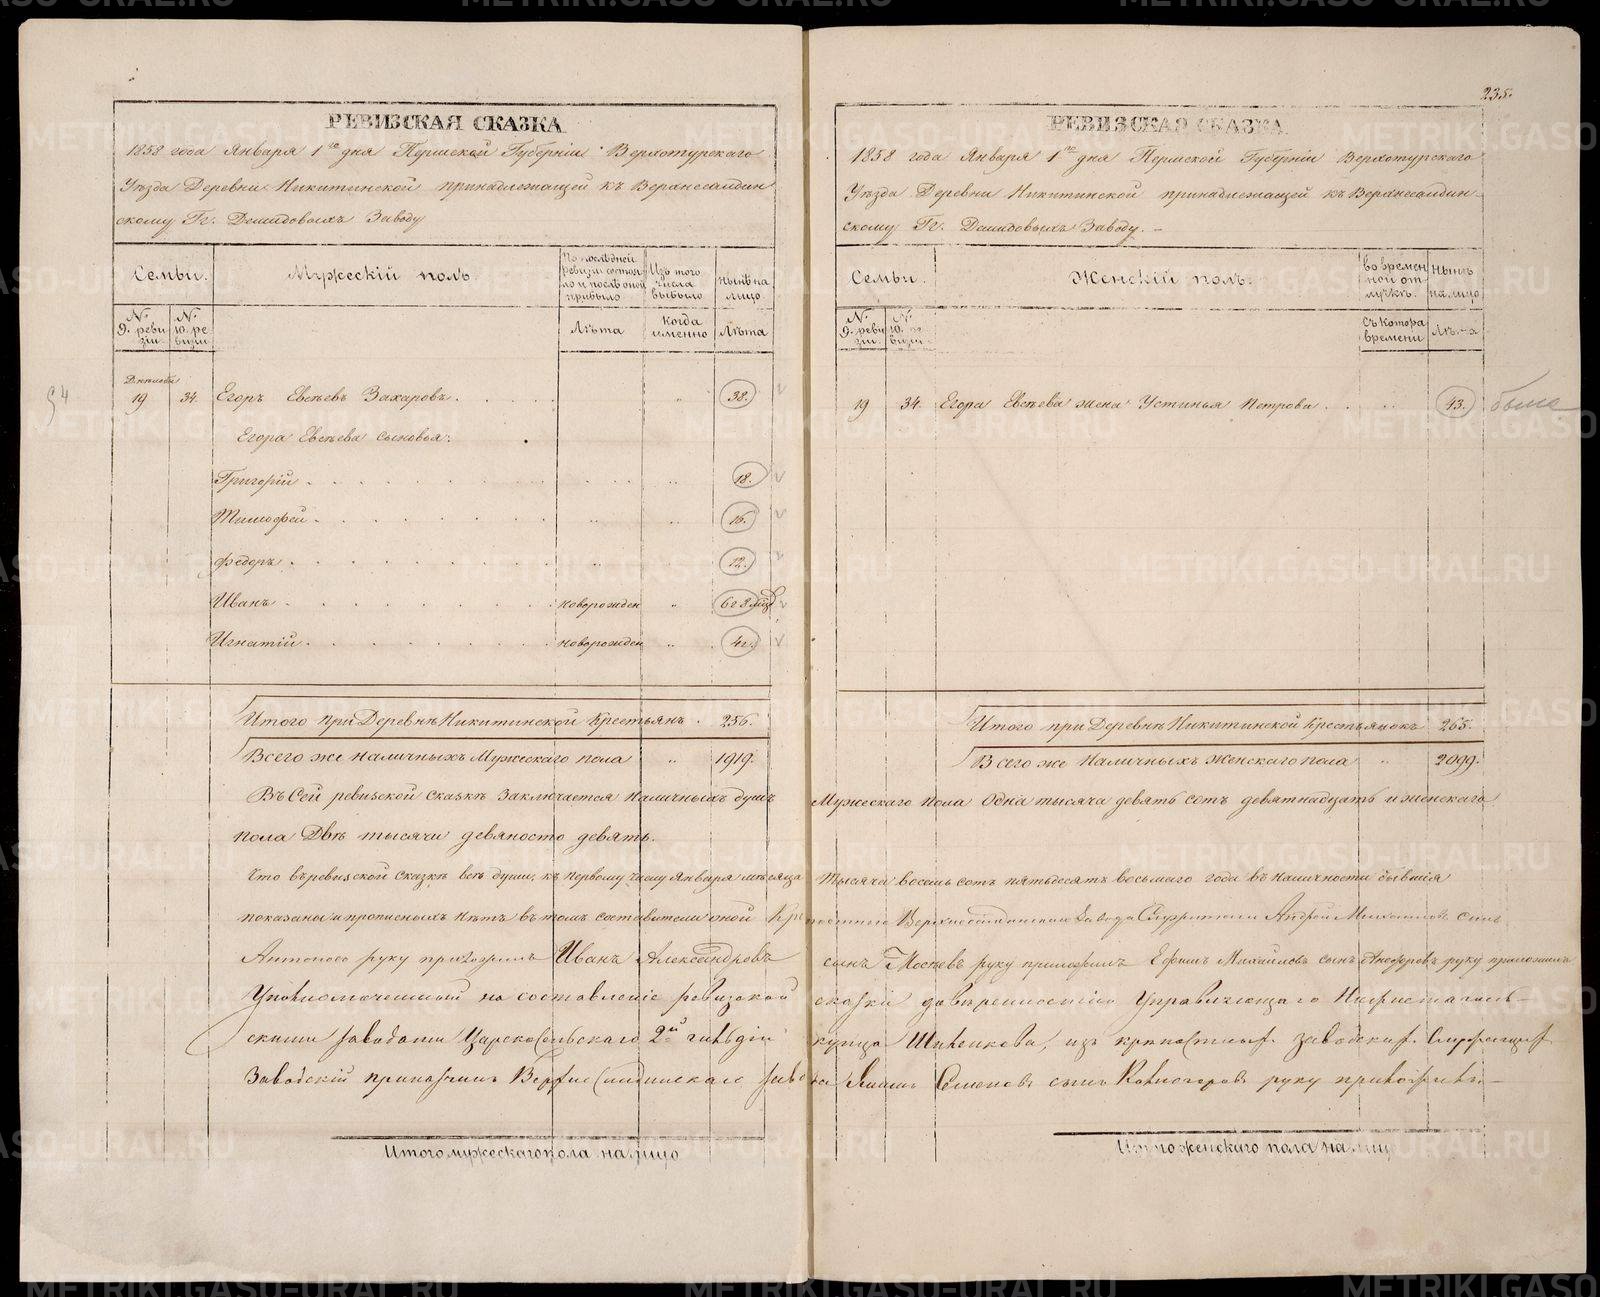 235.
РЕВИЗСКАЯ СКАЗКА
1858 года Января 1го дня Пермской Губерніи Верхотурскаго
Уѣзда Деревни Никитинской принадлежащей къ Верхнесалдин
скому Гг. Демидовыхъ Заводу
Семьи.
Мужескій полъ
По послѣдней ревизіи состоя ло и послѣ оной прибыло
Изъ того числа выбыло
нынѣ на лицо
№ 9. реви зіи
№ 10. ре визіи
Лѣта
Когда именно
Лѣта
19 34 Егоръ Евсѣевъ Захаровъ. 38.
Егора Евсѣева сыновья:
Григорій 18.
Тимофей 16.
Федоръ 12.
Иванъ новорожден 6 г 8 мѣс
Игнатій новорожден 4 г.
Итого при Деревнѣ Никитинской Крестьянъ. 256.
Всего же наличныхъ Мужескаго пола 1919.
РЕВИЗСКАЯ СКАЗКА
1858 года Января 1го дня Пермской Губерніи Верхотурскаго
Уѣзда Деревни Никитинской принадлежащей къ Верхнесалдин-
скому Гг. Демидовыхъ Заводу.-
Семьи.
Женскій полъ.
во времен ной от лучкѣ.
нынѣ на лицо
№ 9. реви зіи
№ 10. ре визіи
съ котора времени
Лѣ.-а
19 34. Егора Евсѣева жена Устинья Петрова 43.
Итого при Деревнѣ Никитинской Крестьянокъ 265.
Всего же Наличныхъ Женскаго пола 2099.
Въ Сей ревизской сказкѣ Заключается Наличныхъ душъ Мужескаго пола Одна тысяча девять сотъ девятнадцать и женскаго
пола Двѣ тысячи девяносто девять.
Что въ ревизской сказкѣ всѣ души, къ первому числу Января мѣсяца Тысяча восемь сотъ пятьдесятъ восьмаго года въ наличности бывшія
показаны и прописныхъ нѣтъ въ томъ составители оной
Антоновъ руку приложилъ Иванъ Александровъ сынъ руку приложилъ Ефимъ Михайловъ сынъ руку приложилъ
Уполномоченный на составленіе ревизской сказки довѣренностію Управляющаго Нижнетагиль-
скими заводами Царскосельскаго 2й гильдіи купца Шиленкова, изъ крѣпостныхъ заводскихъ
Заводскій прикащикъ Верхнесалдинскаго завода руку приложилъ-
Итого мужескаго пола на лицо
Итого женскаго пола на лицо
METRIKI.GASO-URAL.RU